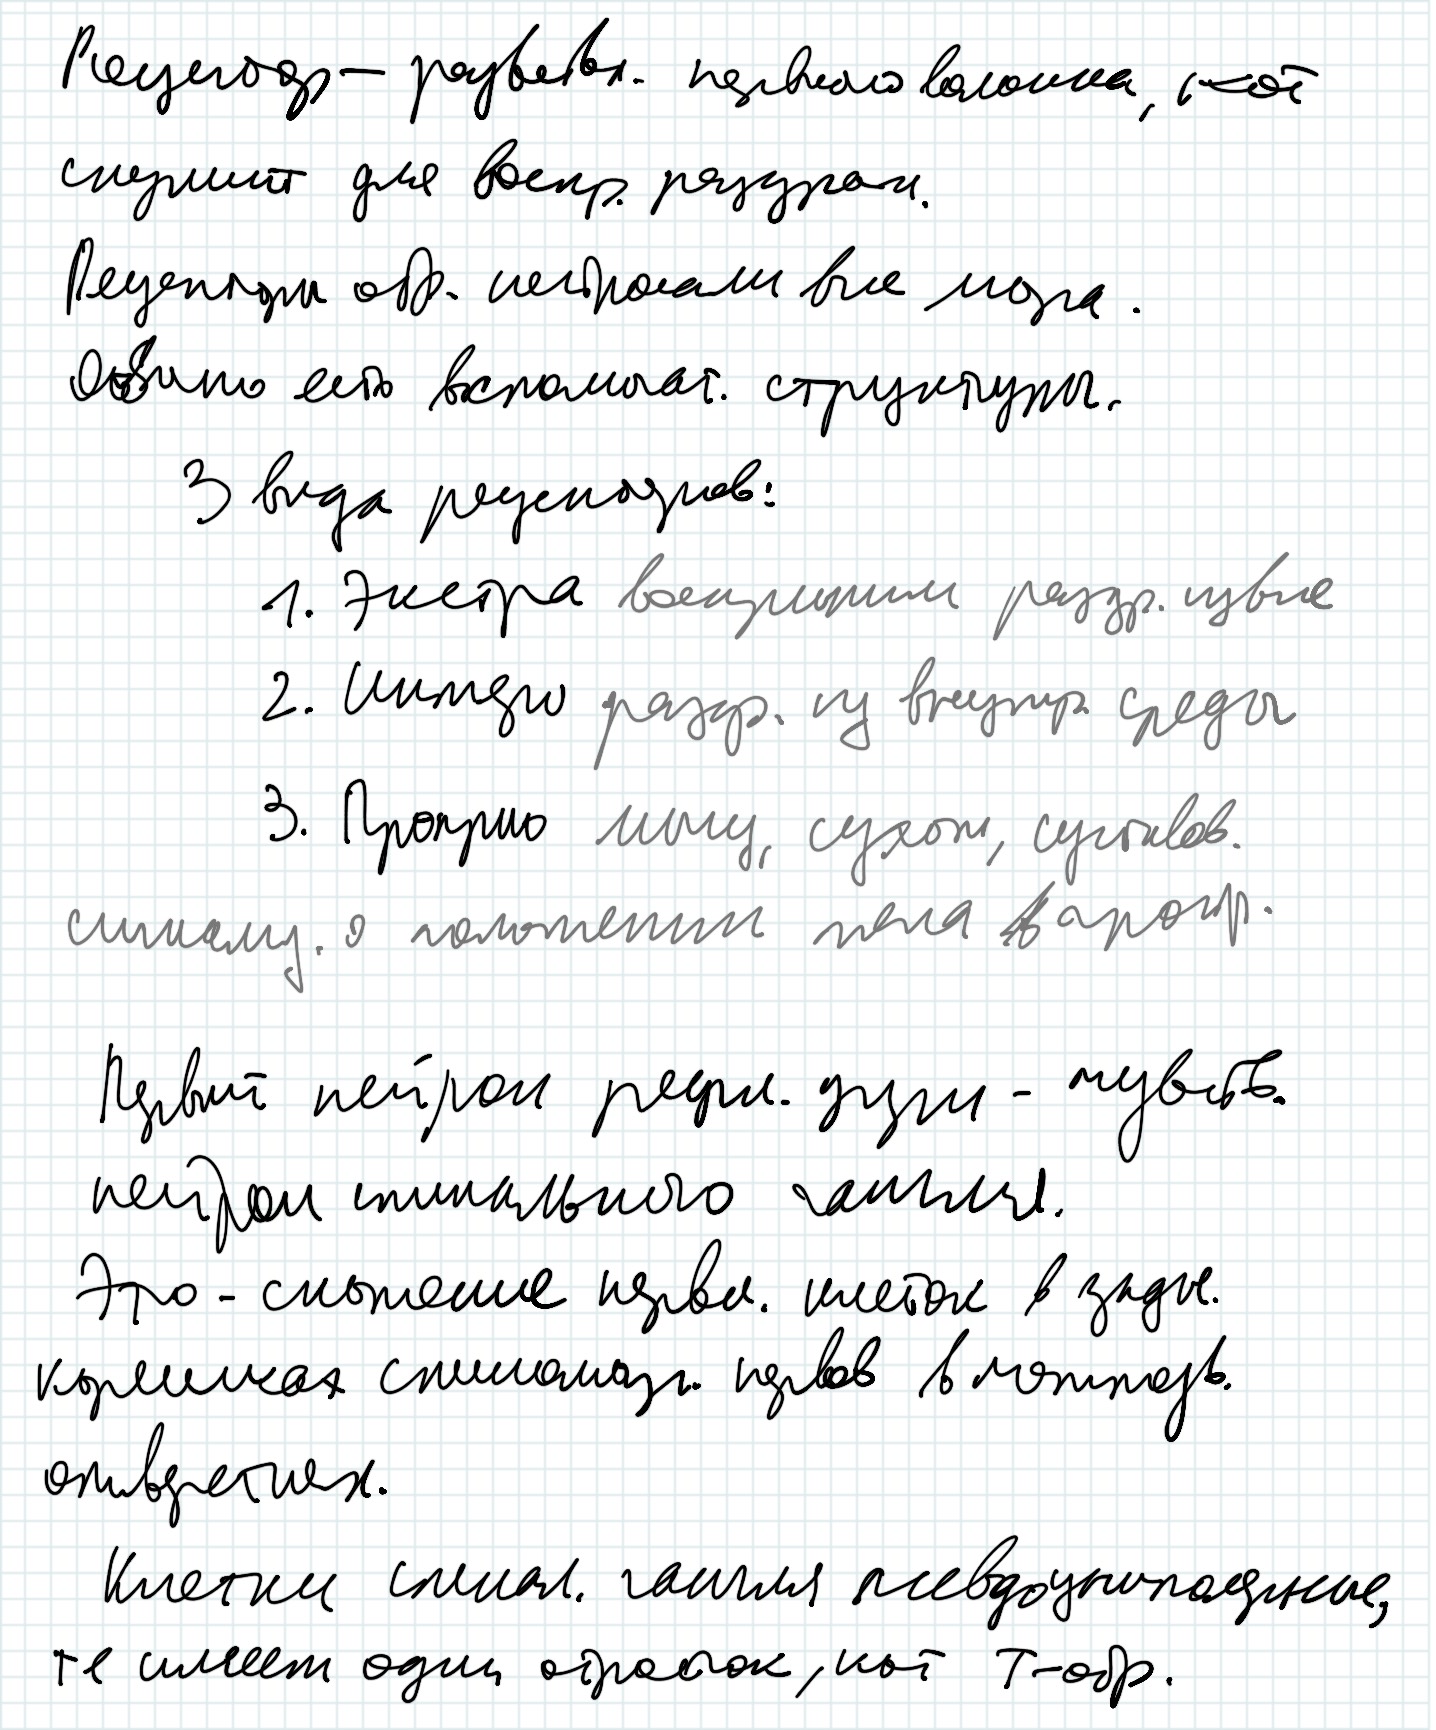 Рецептор – разветвл. нервного волокна, кот
служит для воспр. раздраж.
Рецепторы обр. нейронами вне мозга.
Обычно есть вспомогат. структуры.
3 вида рецепторов:
1. Экстра восприним разд. извне
2. Интеро раздр. из внутр. среды
3. Проприо мышц, сухож, суставов.
сигнализ. о положении тела в простр.
Первый нейрон рефл. дуги – чувств.
нейрон спинального ганглия.
Это – скопление нервн. клеток в задн.
корешках спинномозг. нервов в межпозв.
отверстиях.
Клетки спинал. ганглия псевдоуниполярные,
те имеет один отросток, кот Т-обр.